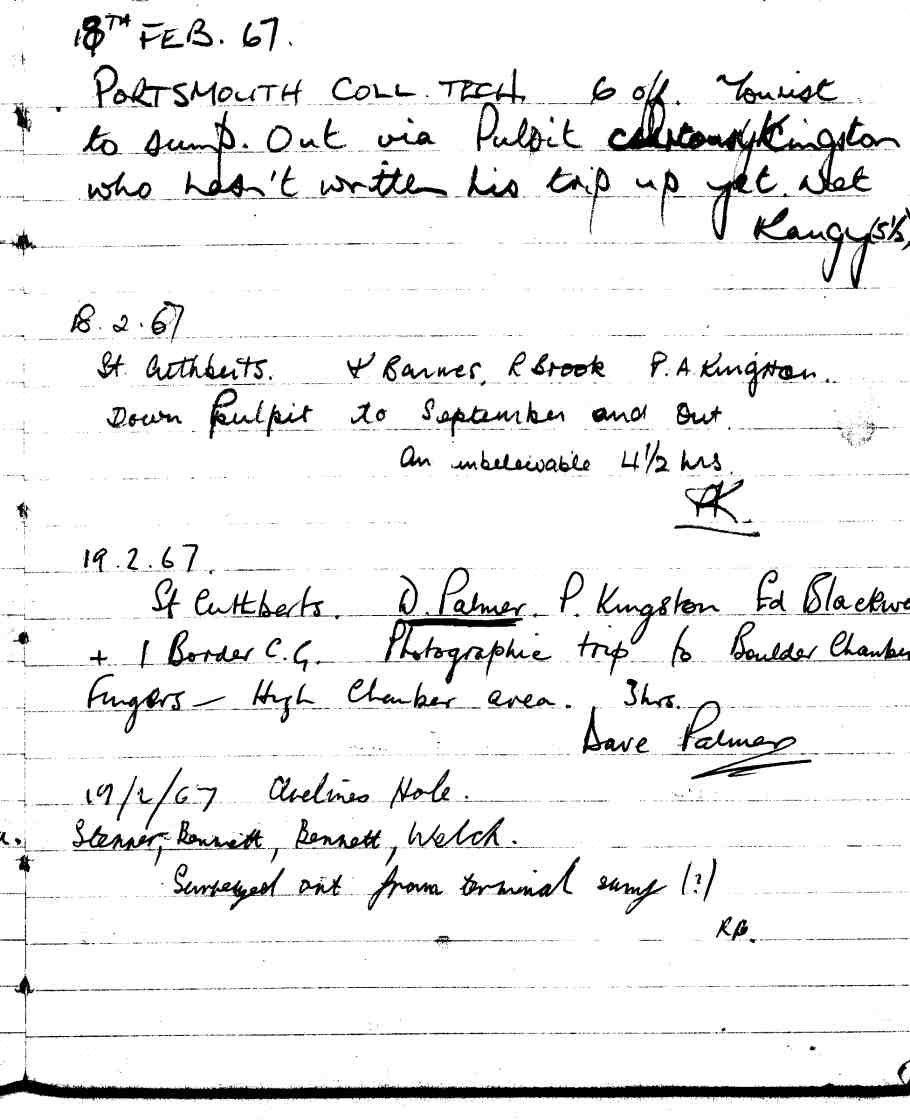 18TH FEB. 67.
PORTSMOUTH COLL. TECH. 6 off. Tourist
to sump. Out via Pulpit Kingston
who hasn't written his trip up yet. Wet
Kangy (5½)
18.2.67
St. Cuthberts. Barnes, R Brook P. A Kingston.
Down Pulpit to September and Out.
An unbeleivable 4 1/2 hrs.
PK.
19.2.67.
St Cuthberts. D. Palmer. P. Kingston Ed Blackwe
+ 1 Border C.G. Photographic trip to Boulder Chamber
Fingers – High Chamber area. 3hrs.
Dave Palmer
19/2/67 Avelines Hole.
Stenner, Bennett, Bennett, Welch.
Surveyed out from terminal sump (?)
RB.